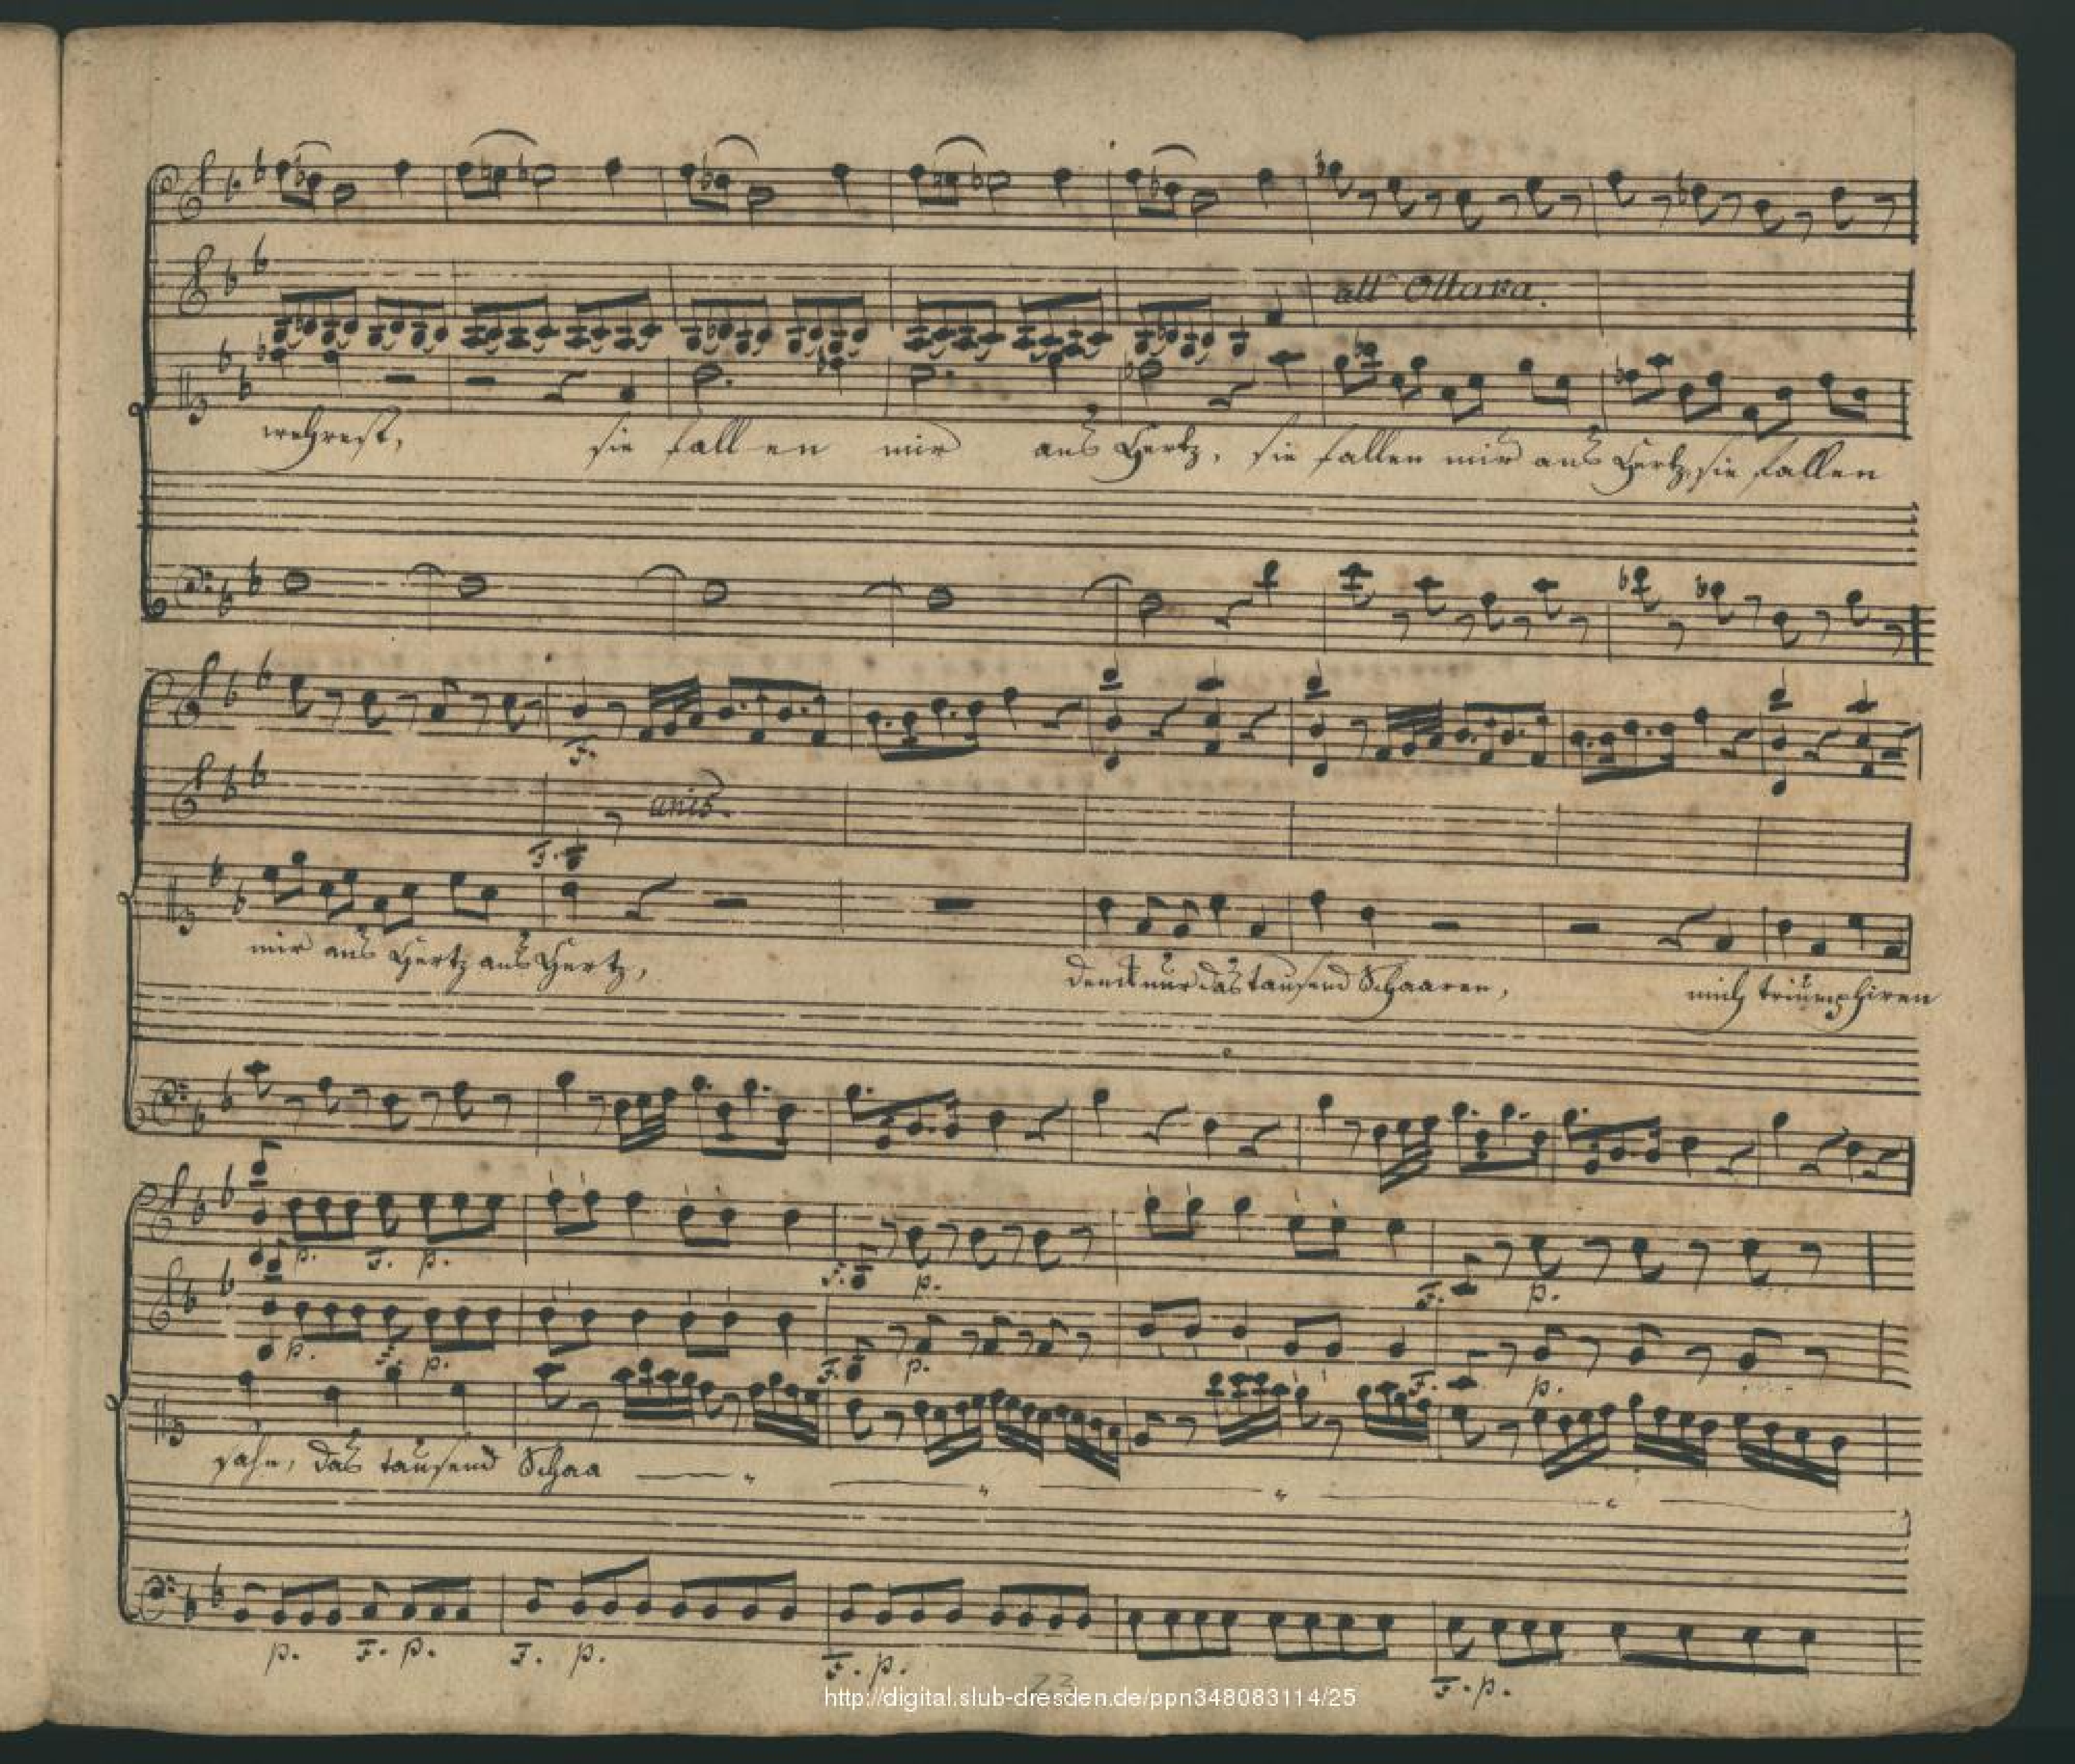 all' Ottava.
wehrest, sie fallen mir ans Hertz, sie fallen mir ans Hertz, sie fallen
F.
unis.
F.
mir ans Hertz ans Hertz, denckt nur das tausend Schaaren, mich triumphiren
p. F. p. F. p. F. p.
p. F. p. F. p. F. p.
sahn, das tausend Schaa
p. F. p. F. p. F. p. F. p.
23
http://digital.slub-dresden.de/ppn348083114/25